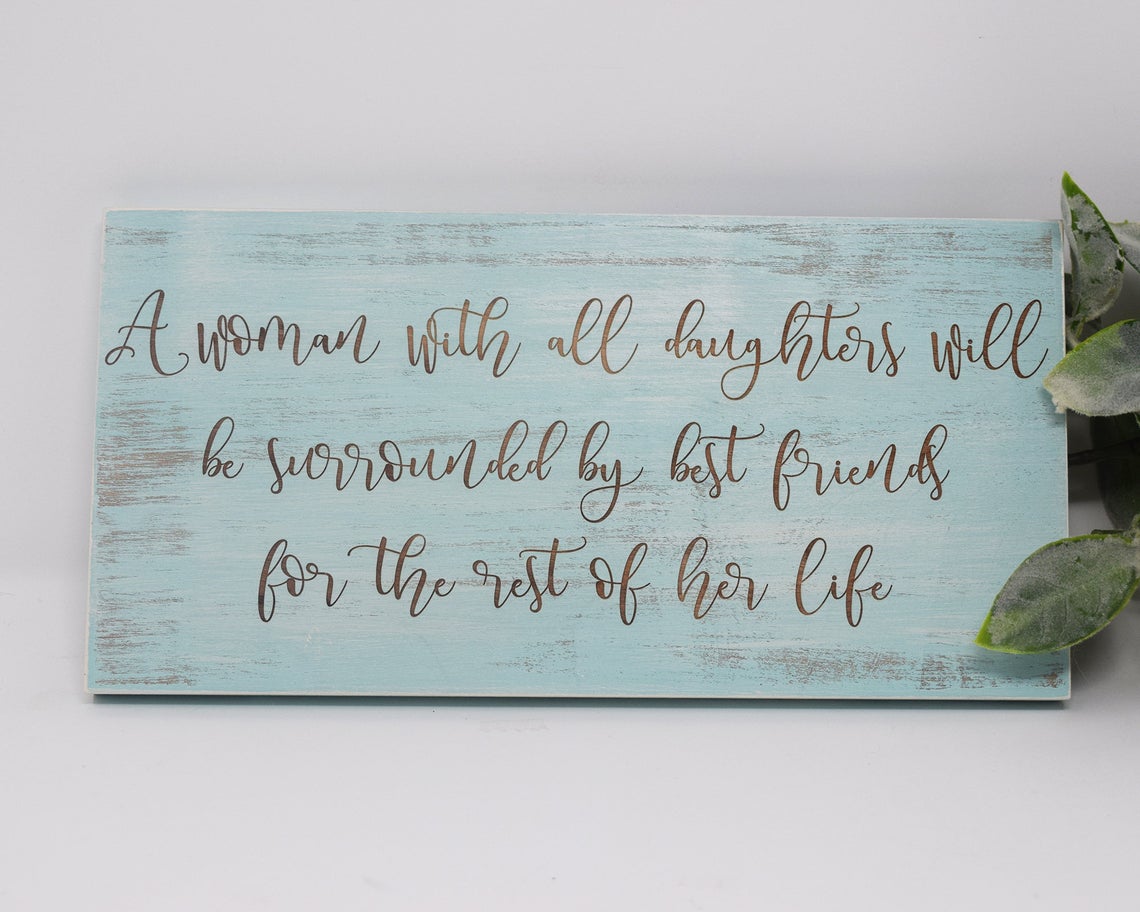 A woman with all daughters will
be surrounded by best friends
for the rest of her life